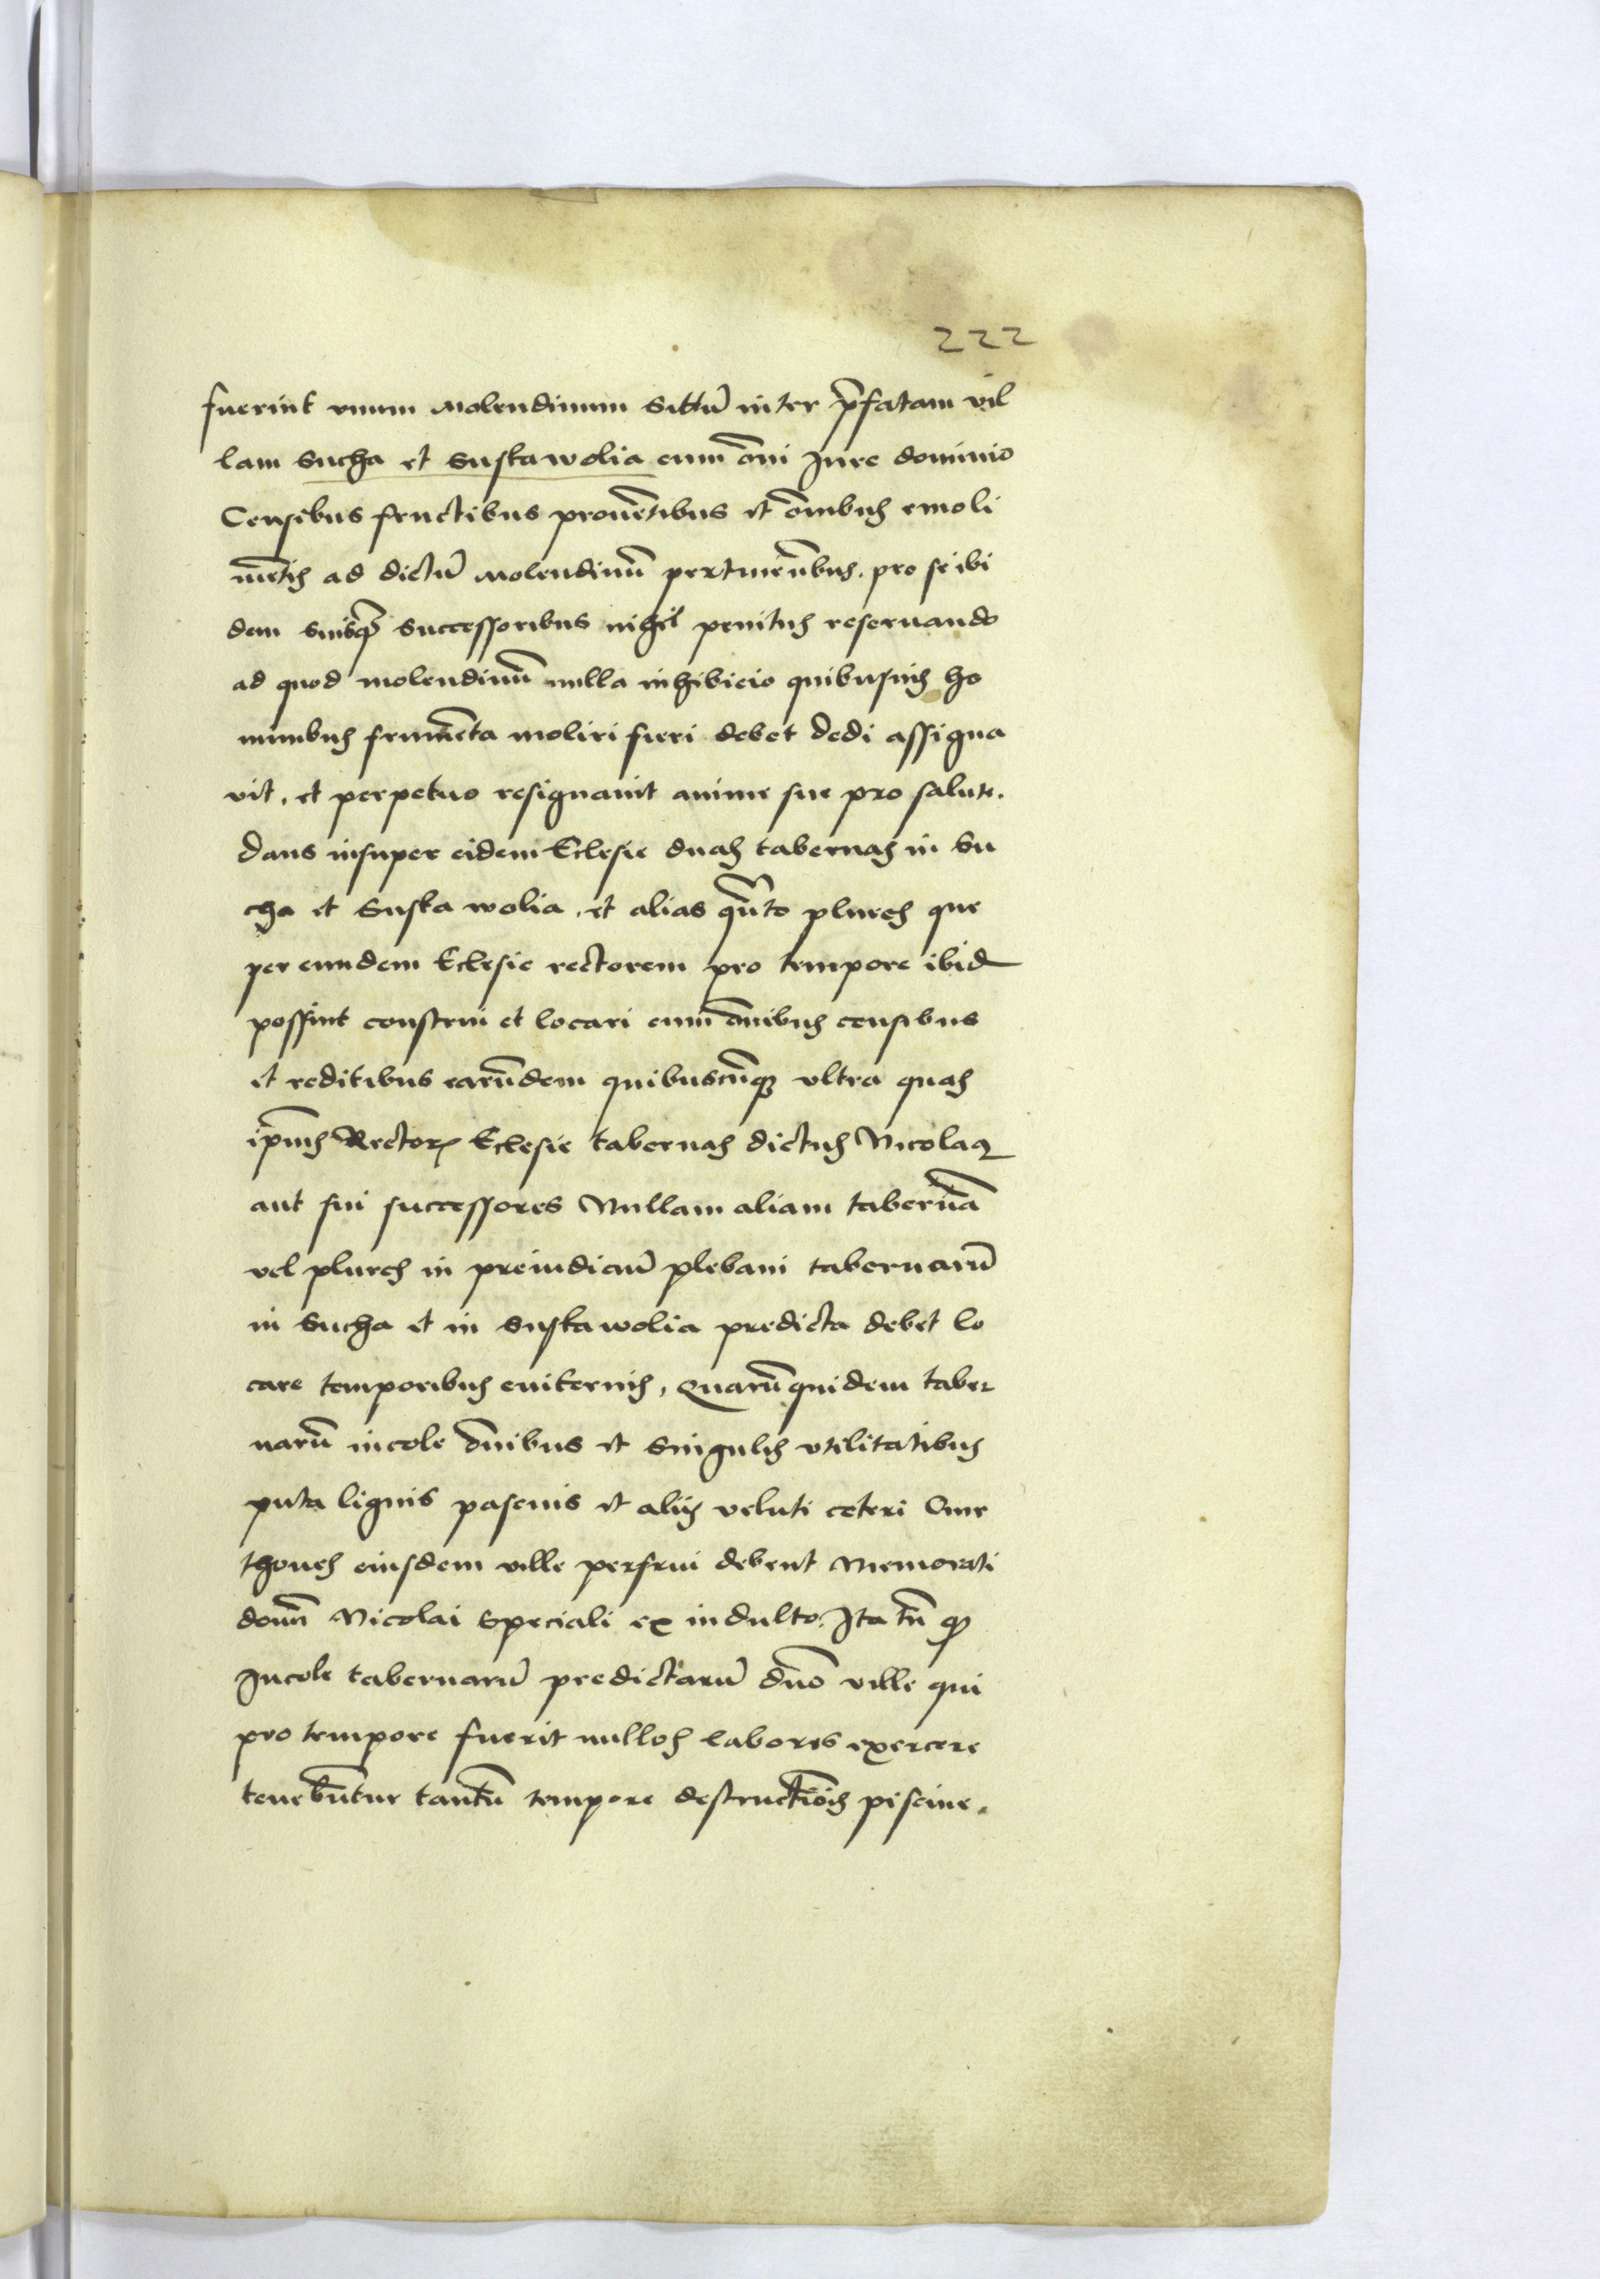 222
fuerint vnum Molendinum Sittū inter p̄fatam vil
lam Sucha et Suska wolia cum om̄i Jure dominio
Censibus fructibus prouētibus et om̄ibus emoli
mētis ad dictū Molendinū pertinētibus. pro se ibi
dem suisq̄ successoribus nihil penitus reseruando
ad quod molendinū nulla inhibicio quibusuis ho
minibus frumēta moliri fieri debet dedi assigna
vit, et perpetuo resignauit anime sue pro salute.
Dans insuper eidem Eclesie duas tabernas in Su
cha et Suska wolia, et alias quāto plures que
per eundem Eclesie rectorem pro tempore ibid
possint construi et locari cum om̄ibus censibus
et reditibus earūdem quibuscūq; vltra quas
ip̄ius Rectoris Eclesie tabernas dictus Nicolaus
aut sui successores Nullam aliam tabernā
vel plures in preiudiciū plebani tabernarū
in Sucha et in Suska wolia predicta debet lo
care temporibus euiternis, Quarū quidem taber
narū incole om̄ibus et Singulis vtilitatibus
puta lignis pascuis et aliis veluti ceteri Cme
thones eiusdem ville perfrui debent Memorati
domī Nicolai Speciali ex indulto. Ita tn̄ q
Incole tabernarū predictarū dn̄o ville qui
pro tempore fuerit nullos labores exercere
tenebūtur tantū tempore destructiōis piscine.